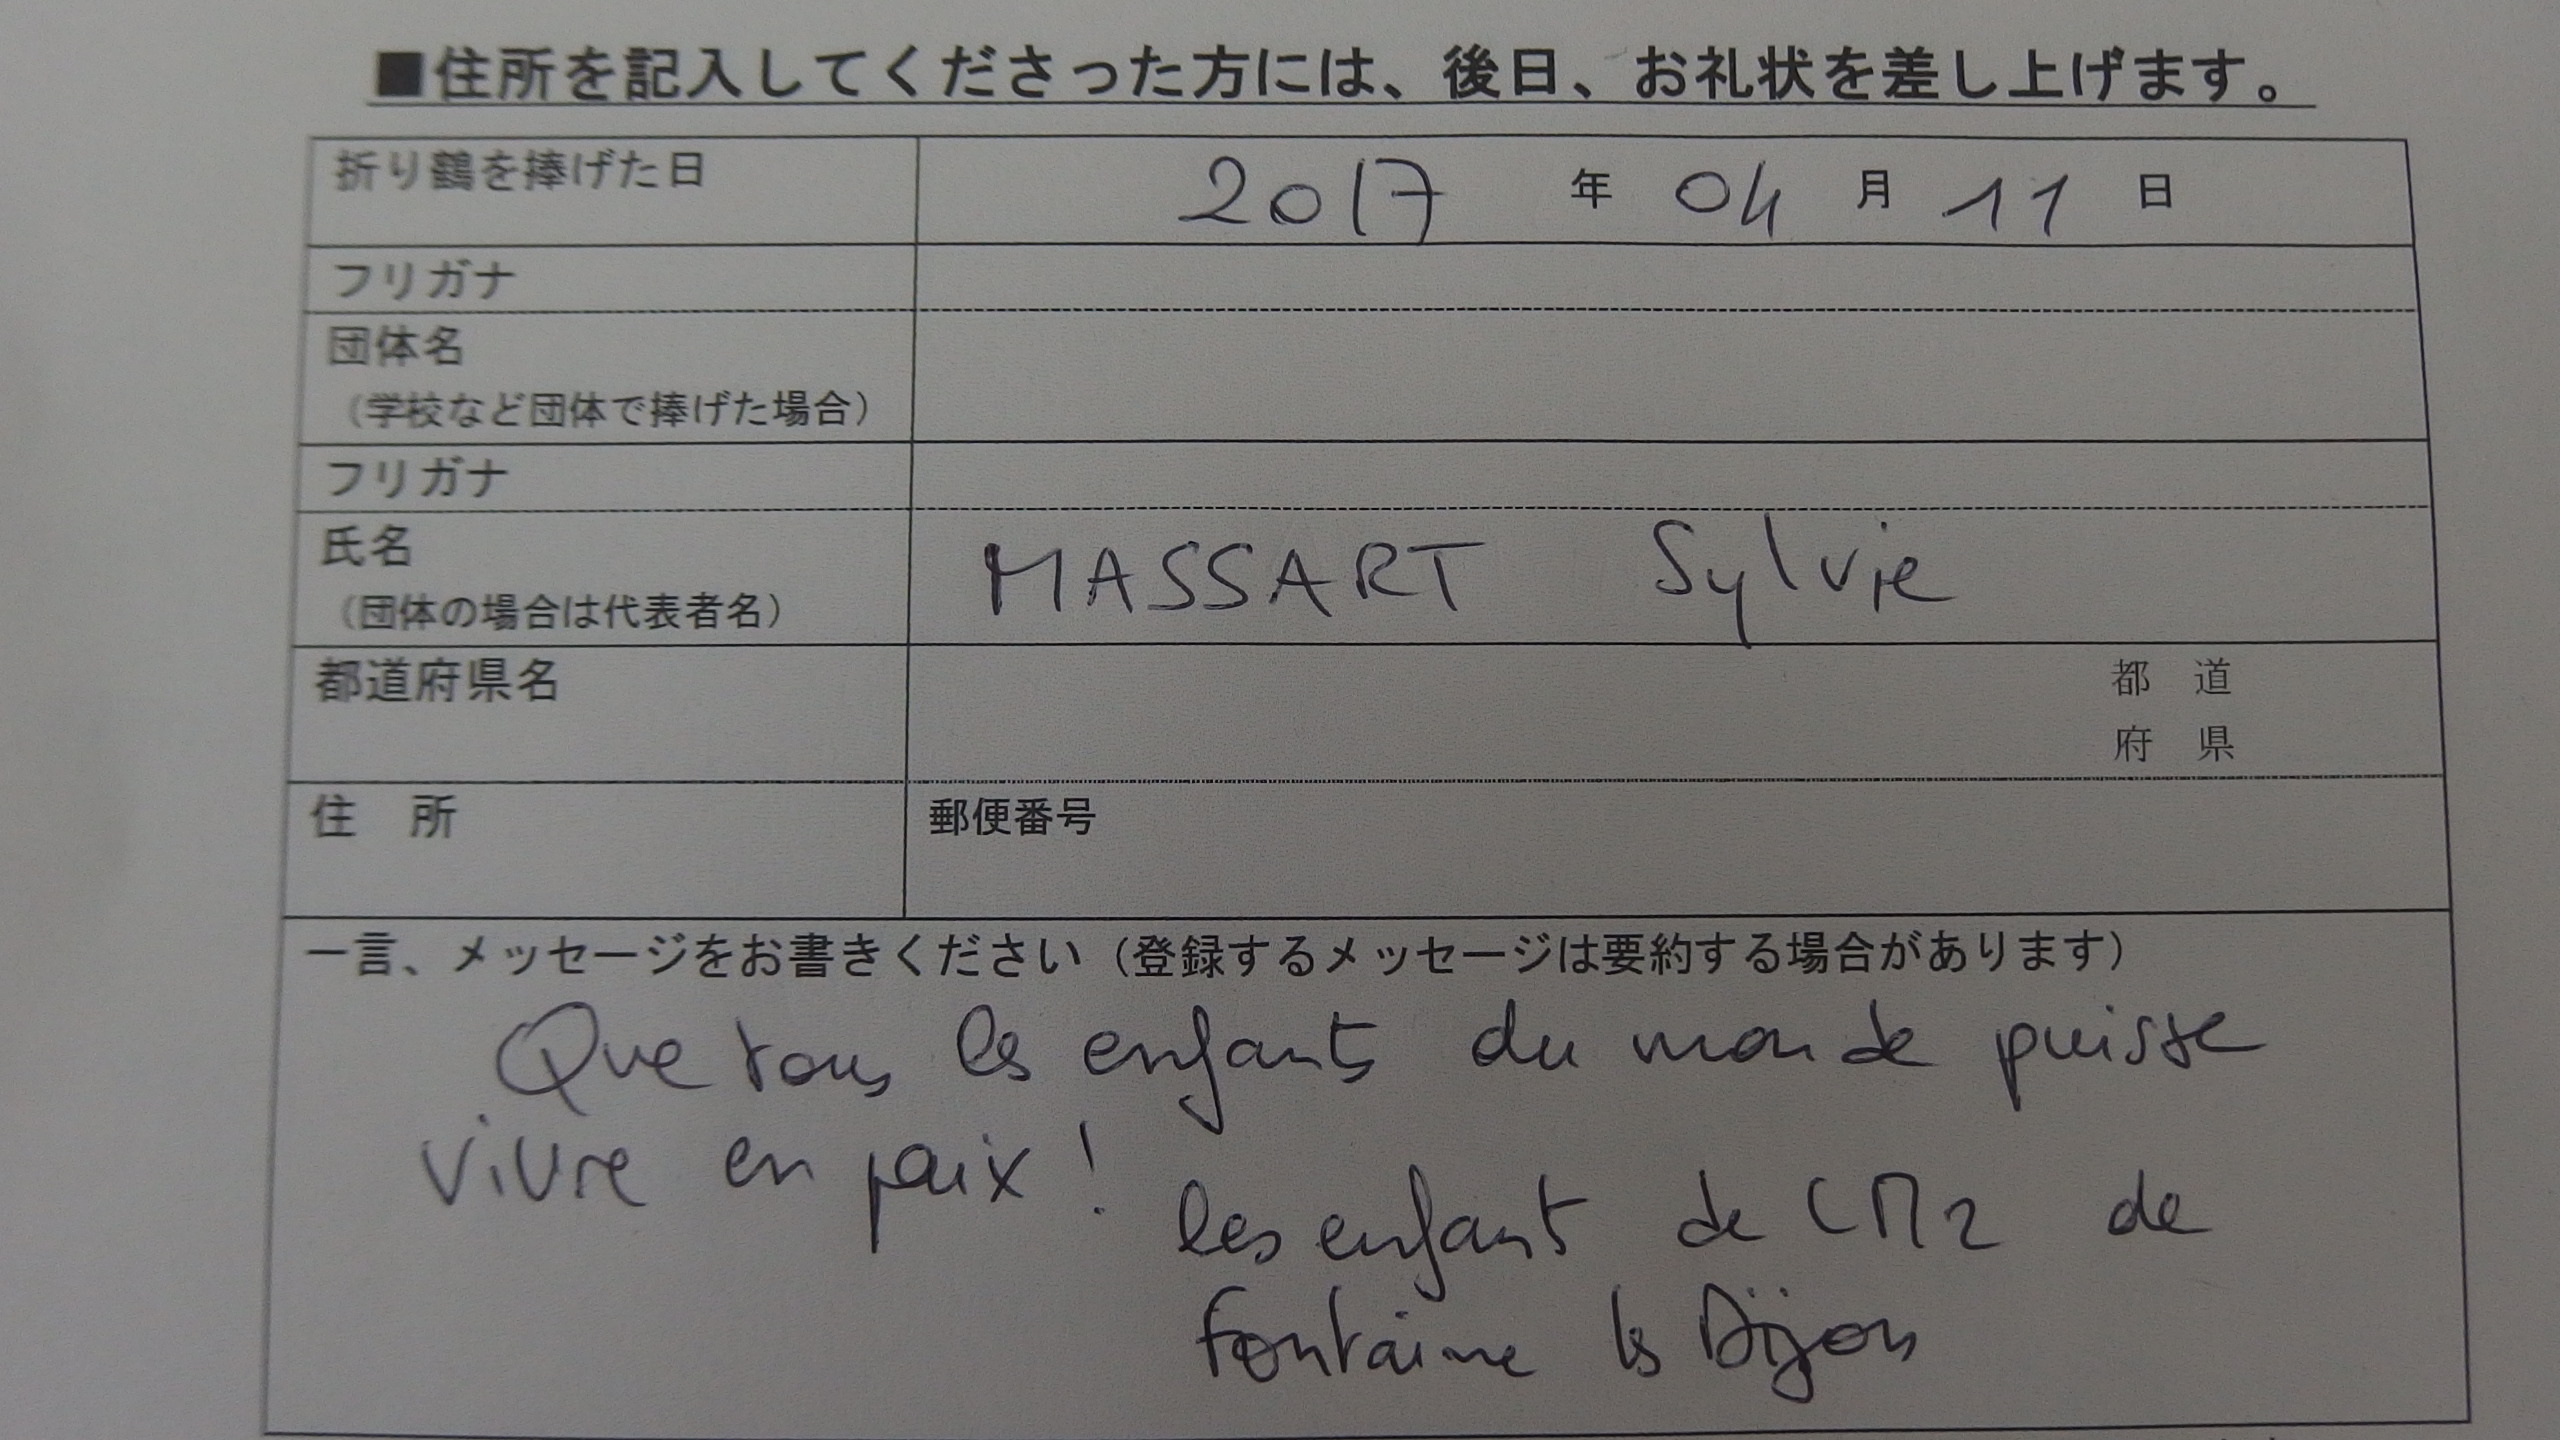 ■住所を記入してくださった方には、後日、お礼状を差し上げます。
折り鶴を捧げた日 2017 年 04 月 11 日
フリガナ
団体名
（学校など団体で捧げた場合）
フリガナ
氏名 MASSART Sylvie
（団体の場合は代表者名）
都道府県名 都 道
府 県
住 所 郵便番号
一言、メッセージをお書きください（登録するメッセージは要約する場合があります）
Que tous les enfants du monde puisse
vivre en paix !
les enfant de CM2 de
Fontaine ls Dijon